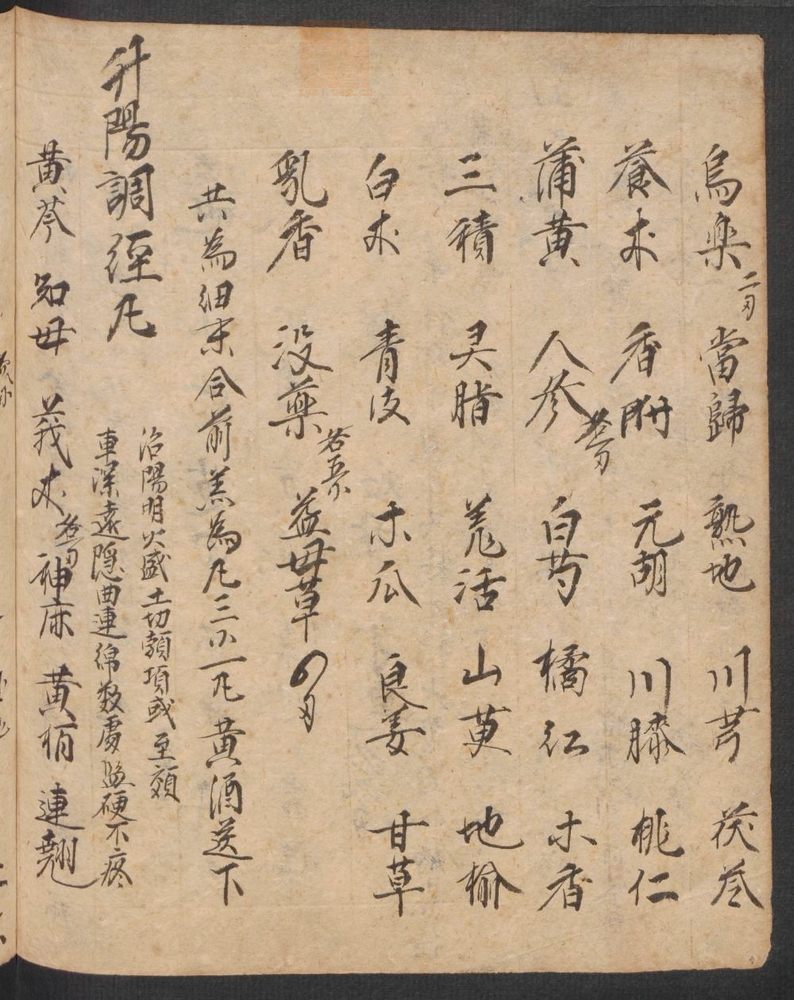 烏藥二刄 當歸 熟地 川芎 茯苓
養木 香附 元胡 川膝 桃仁
蒲黃 人參各刄 白芍 橘红 木香
三積 灵脂 羌活 山萸 地榆
白术 青皮 木瓜 良姜 甘草
乳香 没藥各五分 益母草
共為细末合前羔為凡三小一凡黄酒送下
升陽調經凡
治陽明火盛土切額項或至頦
車深遠隠曲連綿数處堅硬不疼
黄芩 知母 莪术各刄 神麻 黄栢 連翹